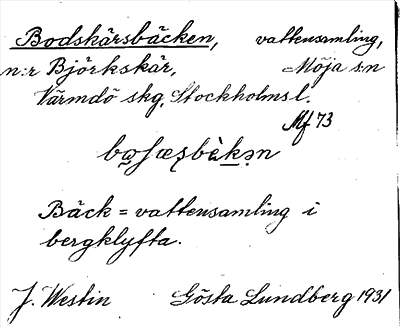 Bodskärsbäcken, vattensamling,
n:r Björkskär, Möja sn
Värmdö skg, Stockholmsl.
Mf 73
Bäck = vattensamling i
bergklyfta.
J. Westin Gösta Lundberg 1931